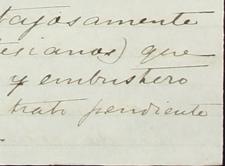 tajosamente
esianos) que
y embustero
trato pendiente